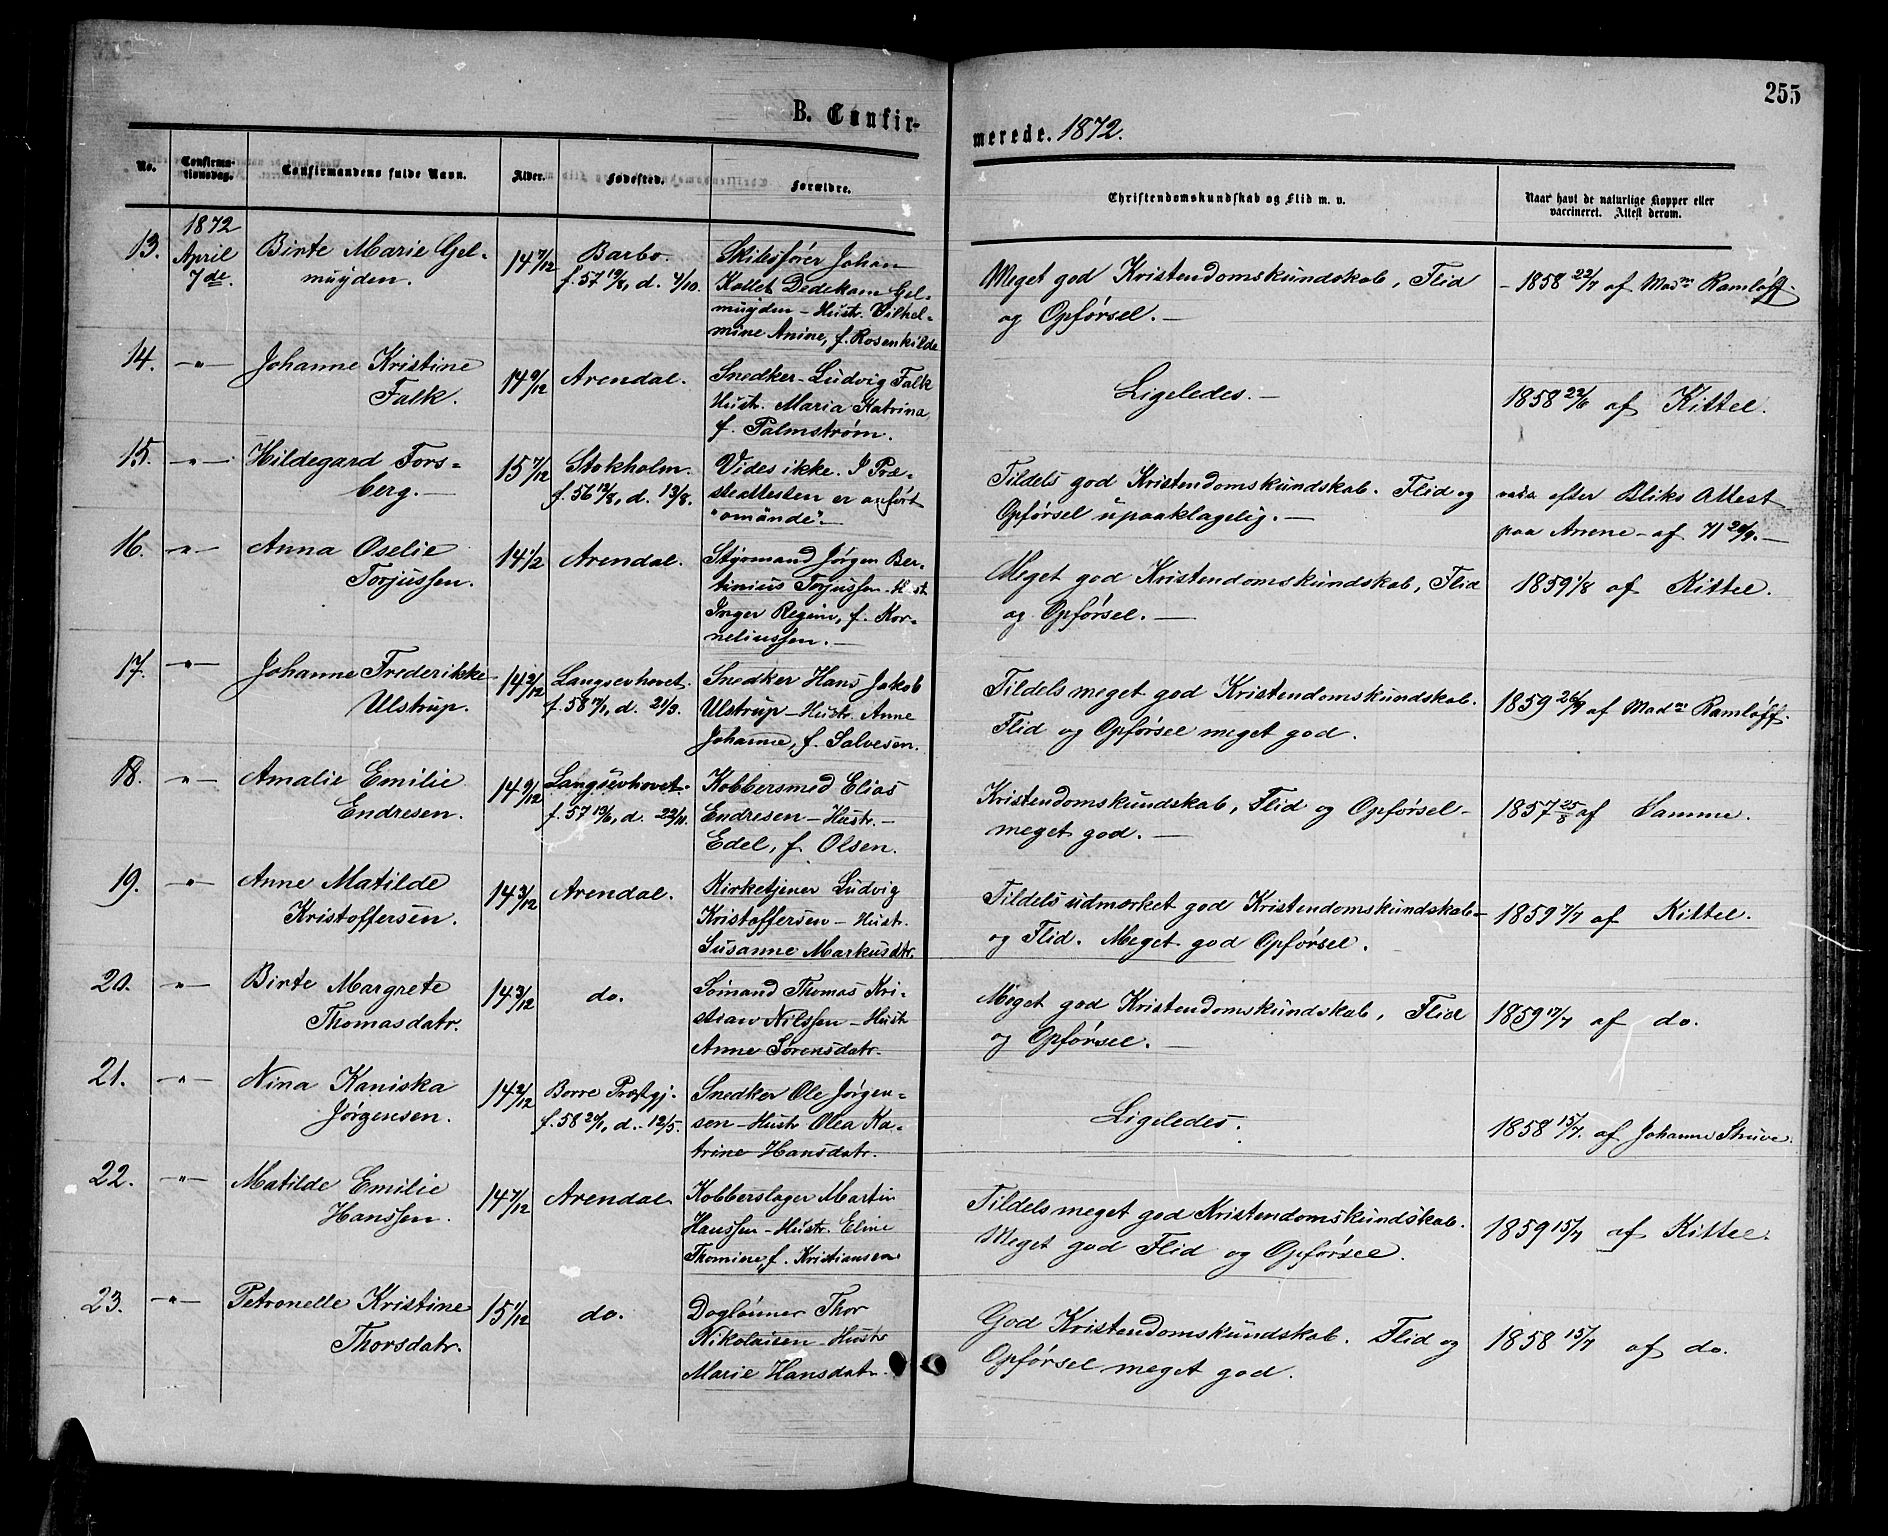 255
B. Confirmerede. 1872.
No. Confirmationsdag. Confirmandens fulde Navn. Alder. Fødested. Forældre. Christendomskundskab og Flid m. v. Naar havt de naturlige Kopper eller vaccineret. Attest derom.
1872
13. April 7de. Birte Marie Gel-
muyden.
14 7/12
Barbo.
f. 57 d. 4/10.
Skibsfører Johan
Kallet Dedekam Gel-
muyden – Hustr. Vilhel-
mine Anine, f. Rosenkilde
Meget god Kristendomskundskab, Flid
og Opførsel. –
– 1858 22/7 af Mad. Ramløff.
14. –"– Johanne Kristine
Falk.
14 9/12
Arendal.
Snedker Ludvig Falk
Hustr. Maria Katrina,
f. Palmstrøm.
Ligeledes. –
1858 22/6 af Kittel.
15. –"– Hildegard Fors-
berg. –
15 7/12
Stokholm.
f. 56 12/8, d. 13/8.
Vides ikke. I Præ-
steattesten er anført
"omände". –
Tildels god Kristendomskundskab. Flid og
Opførsel upaaklagelig. –
efter Bliks Attest
paa Arrene – af 71 –
16. –"– Anna Oselie
Torjussen.
14 1/2
Arendal.
Styrmand Jørgen Ber-
tinius Torjussen – Hust.
Inger Regine, f. Kor-
neliussen. –
Meget god Kristendomskundskab, Flid
og Opførsel. –
1859 1/8 af Kittel.
17. –"– Johanne Frederikke
Ulstrup.
14 2/12
Langsevhovet.
f. 58 d. 21/3.
Snedker Hans Jakob
Ulstrup – Hustr. Anne
Johanne, f. Salvesen.
Tildels meget god Kristendomskundskab.
Flid og Opførsel meget god.
1859 26/7 af Mad. Ramløff.
18. –"– Amalie Emilie
Endresen.
14 9/12
Langsevhovet.
f. 57 d. 22/11.
Kobbersmed Elias
Endresen – Hustr. –
Edel, f. Olsen.
Kristendomskundskab, Flid og Opførsel –
meget god. –
1857 25/8 af Samme.
19. –"– Anne Matilde
Kristoffersen.
14 3/12
Arendal.
Kirketjener Ludvig
Kristoffersen – Hustr.
Susanne Markusdtr.
Tildels udmærket god Kristendomskundskab –
og Flid. Meget god Opførsel.
1859 7/7 af Kittel.
20. –"– Birte Margrete
Thomasdatr.
14 3/12
do.
Sømand Thomas Kri-
stian Nilssen – Hustr
Anne Sørensdatr.
Meget god Kristendomskundskab, Flid
og Opførsel. –
1859 17/7 af do.
21. –"– Nina Kaniska
Jørgensen.
14 2/12
Borre Præstgj.
f. 58 d. 12/5.
Snedker Ole Jørgen-
sen – Hustr Olea Ka-
trine Hansdatr.
Ligeledes.
1858 15/7. af Johanne Struve.
22. –"– Matilde Emilie
Hanssen.
14 7/12
Arendal
Kobberslager Martin
Hanssen – Hustr. Eline
Thomine, f. Kristiansen
Tildels meget god Kristendomskundskab.
Meget god Flid og Opførsel.
1859 15/7 af Kittel.
23. –"– Petronelle Kristine
Thorsdatr.
15 1/12
do.
Dagløнner Thor
Nikolaisen – Hustr
Marie Hansdatr.
God Kristendomskundskab. Flid og
Opførsel meget god.
1858 15/7 af do.